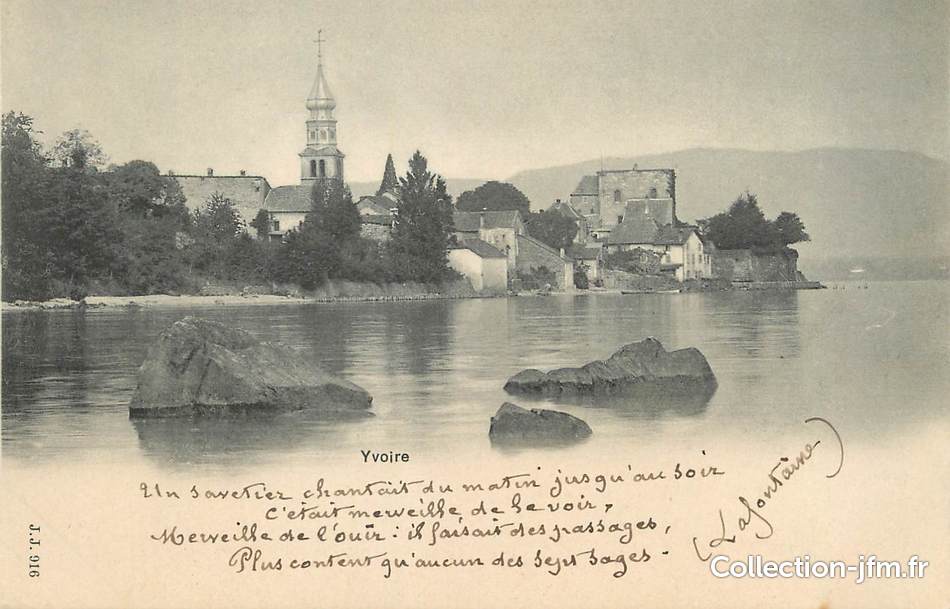 Yvoire
Un savetier chantait du matin jusqu'au soir
C'était merveille de le voir,
Merveille de l'ouïr : il faisait des passages,
Plus content qu'aucun des sept sages.
(Lafontaine)
J.J. 916
Collection-jfm.fr